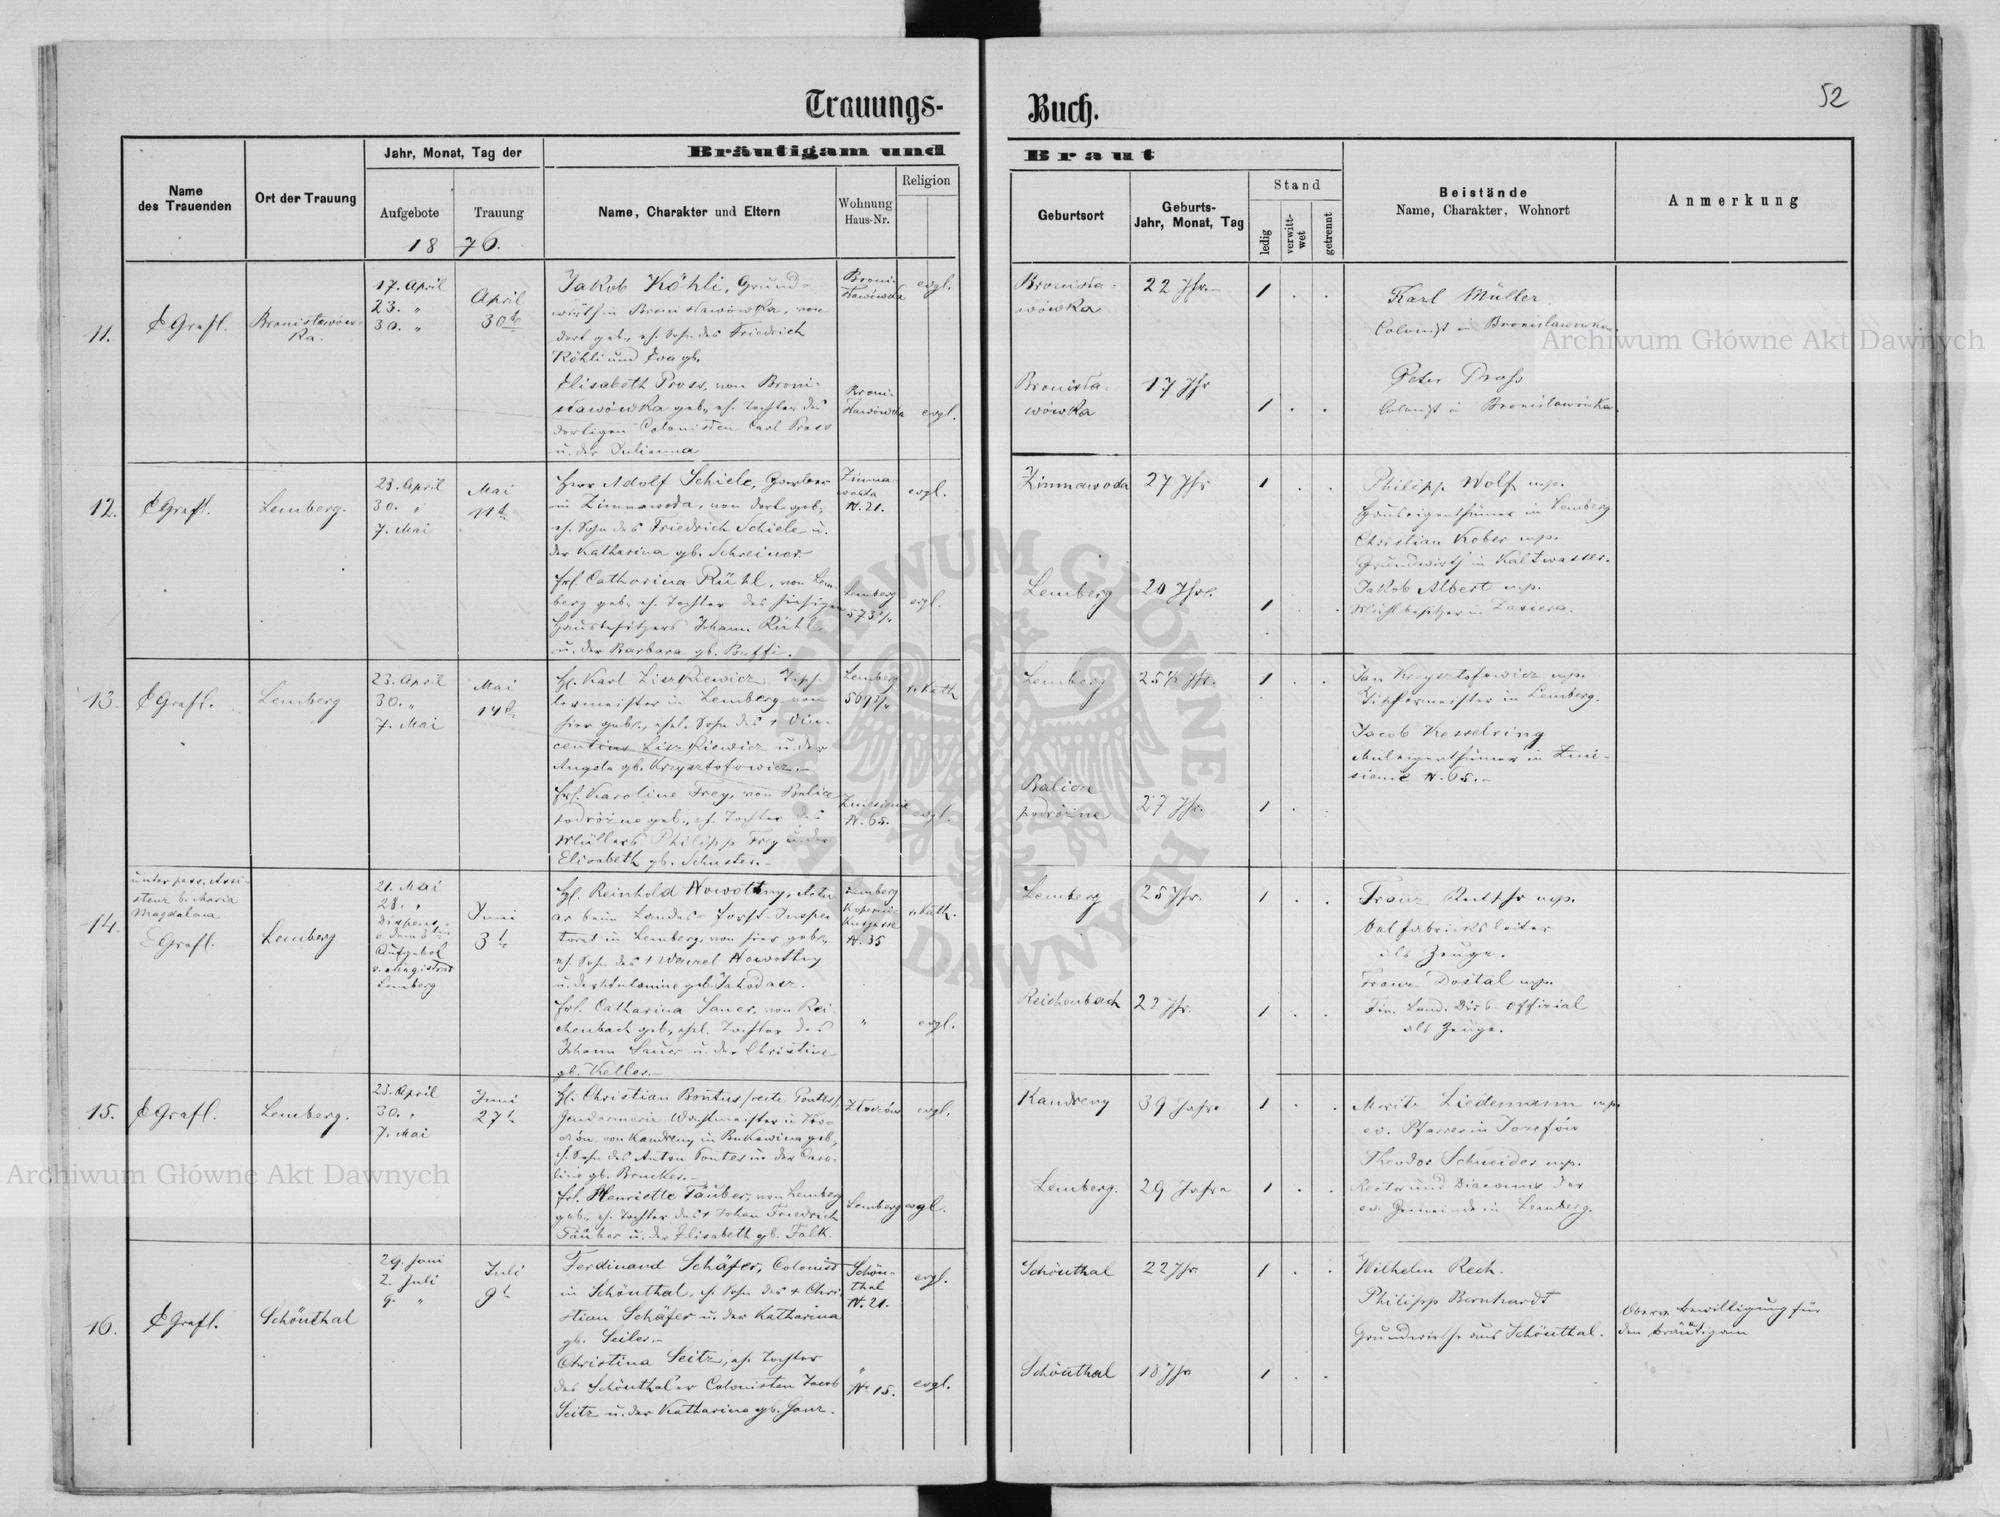 Trauungs-
Buch.
52
Name
des Trauenden
Ort der Trauung
Jahr, Monat, Tag der
Aufgebote
Trauung
1876.
Bräutigam und
Braut
Name, Charakter und Eltern
Wohnung
Haus-Nr.
Religion
Geburtsort
Geburts-
Jahr, Monat, Tag
Stand
ledig
verwitt-
wet
getrennt
Beistände
Name, Charakter, Wohnort
Anmerkung
11.
E Grafl.
Bronisławów-
ka.
17. April
23. "
30. "
April
30t
Jakob Köhli, Grund-
wirth in Bronisławówka, von
dort geb., eh. Sohn des Friedrich
Köhli und Eva gb.
Broni-
sławówka
evgl.
Bronisła-
wówka
22 Jhr.
1 . .
Karl Müller
Colonist in Bronislawowka
Elisabeth Pross, von Broni-
sławówka geb., eh. Tochter des
dortigen Colonisten Carl Pross
u. der Julianna
Broni-
sławówka
evgl.
Bronisła-
wówka
17 Jhr
1 . .
Peter Pross
Colonist in Bronislawówka.
12.
E Grafl.
Lemberg.
23. April
30. "
7. Mai
Mai
11t
Herr Adolf Schiele,
in Zimnawoda, von dort geb.,
eh. Sohn des Friedrich Schiele u.
der Katharina gb. Schreiner.
Zimna-
woda
N. 21.
evgl.
Zimnawoda
27 Jhr
1 . .
Philipp Wolf mp.
Hauseigenthümer in Lemberg
Christian Kober mp.
Grundwirth in Kaltwasser.
Jakob Albert mp.
Mühlbesitzer in
Frl. Catharina Rühl, von Lem-
berg geb., eh. Tochter des hiesigen
Hausbesitzers Johann Rühl
u. der Barbara gb. Buffi.
Lemberg
evgl.
Lemberg
20 Jhr.
1 . .
13.
E Grafl.
Lemberg
23. April
30. "
7. Mai
Mai
14t
H. Karl Liszkiewicz Töpf-
lermeister in Lemberg von
hier geb., ehel. Sohn des + Vin-
centius Liszkiewicz u. der
Angela gb. Krzysztofowicz.
Lemberg
r. kath
Lemberg
25½ Jhr.
1 . .
Jan Krzysztofowicz mp.
Töpfermeister in Lemberg.
Jacob Kesselring
Mühleigenthümer in Znie-
sienie N. 65.
Frl. Karoline Frey, von Balice
podróżne geb., eh. Tochter des
Müllers Philipp Frey u. der
Elisabeth gb. Schuster.
Zniesienie
N. 65.
evgl.
Balice
podróżne
27 Jhr.
1 . .
14.
unter pass. Assi-
stenz b. Maria
Magdalena
E Grafl.
Lemberg
21. Mai
28. "
Dispens
v. dem 3ten
Aufgebot
v. Magistrat
Lemberg
Juni
3t
H. Reinhold Nowottny, Actu
ar beim Landes-Forst-Inspec
torat in Lemberg, von hier geb.,
eh. Sohn des + Wenzel Nowottny
Lemberg
Koperni-
kusgasse
N. 35
r. kath.
Lemberg
25 Jhr.
1 . .
Franz mp.
Oelfabriksleiter
als Zeuge.
Franz Dostal mp.
Fin. Land. Dir. Offizial
als Zeuge.
Frl. Catharina Sauer, von Rei-
chenbach geb., ehel. Tochter des
Johann Sauer u. der Christine
gb. Keller.
"
evgl.
Reichenbach
22 Jhr.
1 . .
15.
E Grafl.
Lemberg.
23. April
30. "
7. Mai
Juni
27t
H. Christian Bontus /recte Pontes/,
Gendarmerie-Wachtmeister in Zło-
czów, von Kandreny in Bukowina geb.,
eh. Sohn des Anton Pontes u. der Caro-
line gb. Brucker.
Złoczów
evgl.
Kandreny
39 Jahre
1 . .
Moritz Liedemann mp.
ev. Pfarrer in Josefów
Theodor Schneider mp.
Rector und Diaconus der
ev. Gemeinde in Lemberg.
Frl. Henriette Täuber, von Lemberg
geb., eh. Tochter des + Johan Friedrich
Täuber u. der Elisabeth gb. Falk.
Lemberg
evgl.
Lemberg.
29 Jahre
1 . .
16.
E Grafl.
Schönthal
29. Juni
2. Juli
9. "
Juli
9t
Ferdinand Schäfer, Colonist
in Schönthal, eh. Sohn des + Chri-
stian Schäfer u. der Katharina
gb. Seiler.
Schön-
thal
N. 21.
evgl.
Schönthal
22 Jhr.
1 . .
Wilhelm Rech.
Philipp Bernhardt
Grundwirthe aus Schönthal.
Oberv. bewilligung für
den bräutigam
Christina Seitz, eh. Tochter
des Schönthaler Colonisten Jacob
Seitz u. der Katharina gb. Janz.
"
N. 15.
evgl.
Schönthal
18 Jhr
1 .
Archiwum Główne Akt Dawnych
Archiwum Główne Akt Dawnych
ARCHIWUM GŁÓWNE AKT DAWNYCH